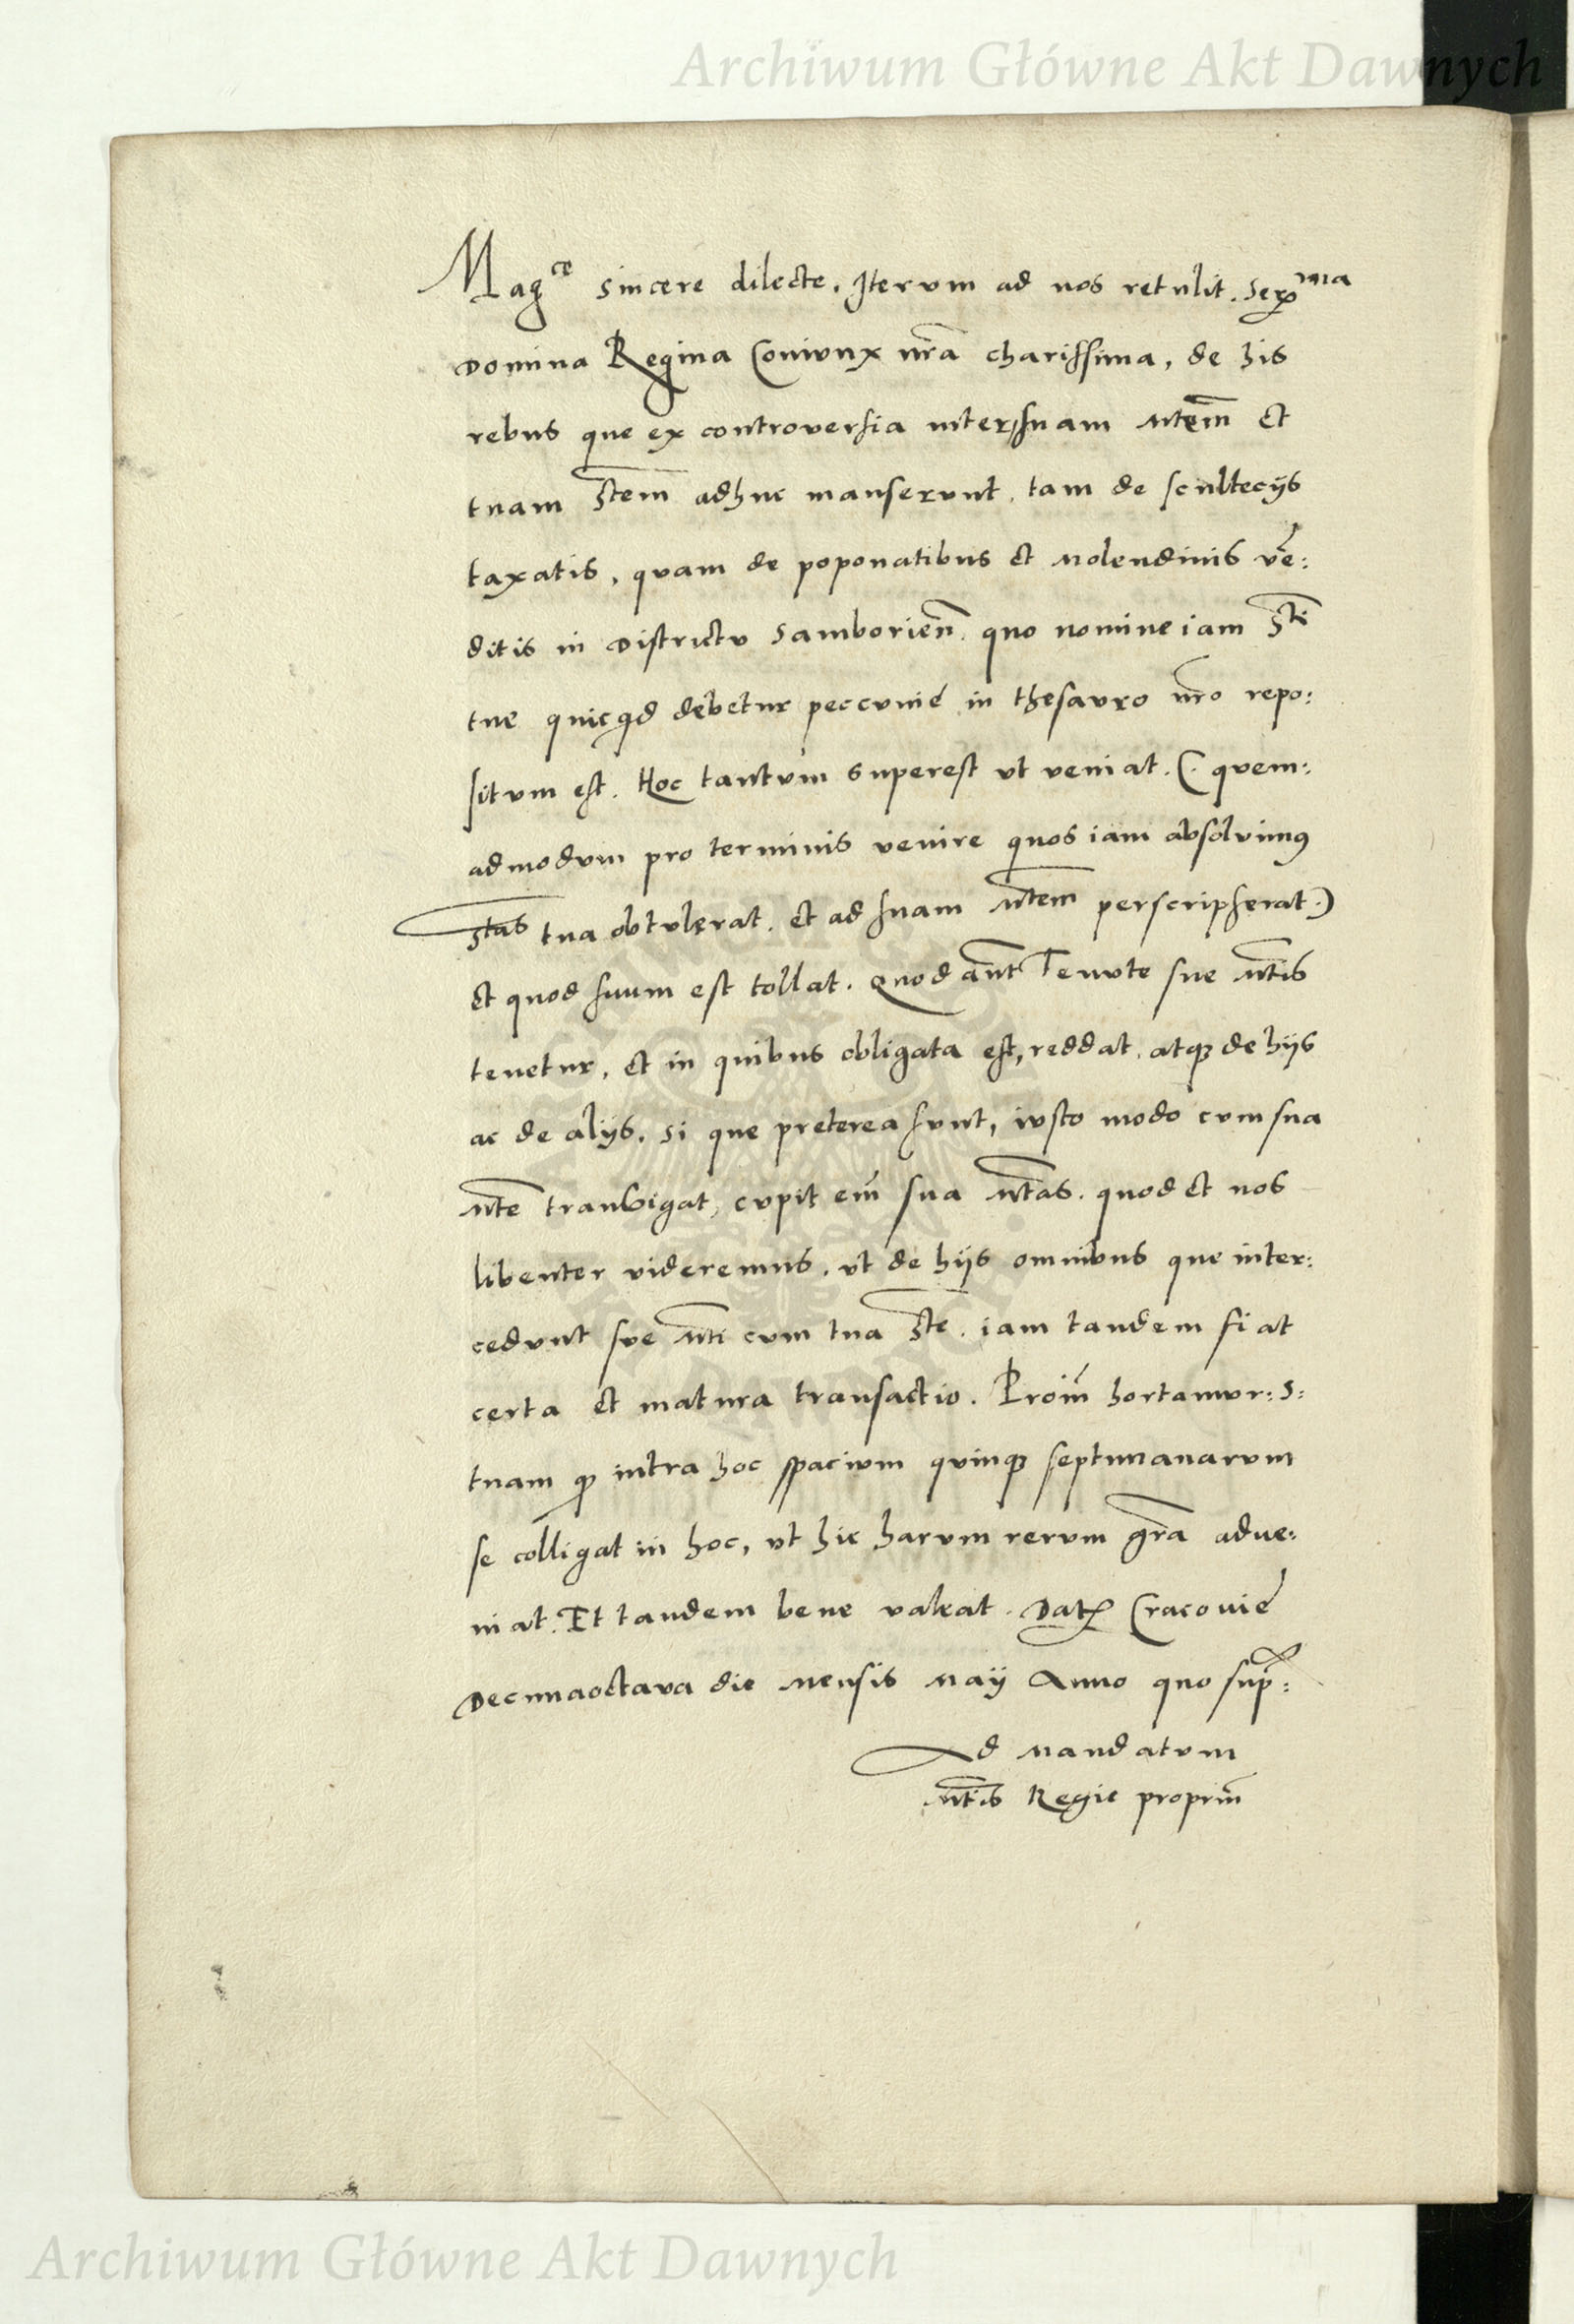 Archiwum Główne Akt Dawnych
Mag^ce sincere dilecte. Iterum ad nos retulit. Ser^ma
Domina Regina Coniunx nr̃a charissima, de his
rebus que ex controversia inter suam Mt̃em et
tuam St̃em adhuc manserunt. tam de scultecijs
taxatis, quam de poponatibus et Molendinis ve:
ditis in Districtu Samborieñ. quo nomine iam St̃i
tue quicqd debetur peccunie in thesauro nr̃o repo:
situm est. Hoc tantum superest ut veniat. (. quem:
admodum pro terminis venire quos iam absoluimus
St̃as tua obtulerat. et ad suam Mt̃em perscripserat.)
et quod suum est tollat. Quod aũt Tenute sue Mt̃is
tenetur, et in quibus obligata est, reddat. atq; de hijs
ac de alijs. si que preterea sunt, iusto modo cum sua
Mt̃e transigat, cupit em̃ sua Mt̃as. quod et nos
libenter videremus. ut de hijs omnibus que inter:
cedunt sue Mt̃i cum tua St̃e. iam tandem fiat
certa et matura transactio. Proiñ hortamur: S:
tuam qp intra hoc spacium quinq; septimanarum
se colligat in hoc, ut hic harum rerum gr̃a adve:
niat. Et tandem bene valeat. Dat Cracovie
Decimaoctava die Mensis Maij Anno quo sup̃:
Ad Mandatum
Mt̃is Regie propriũ
Archiwum Główne Akt Dawnych